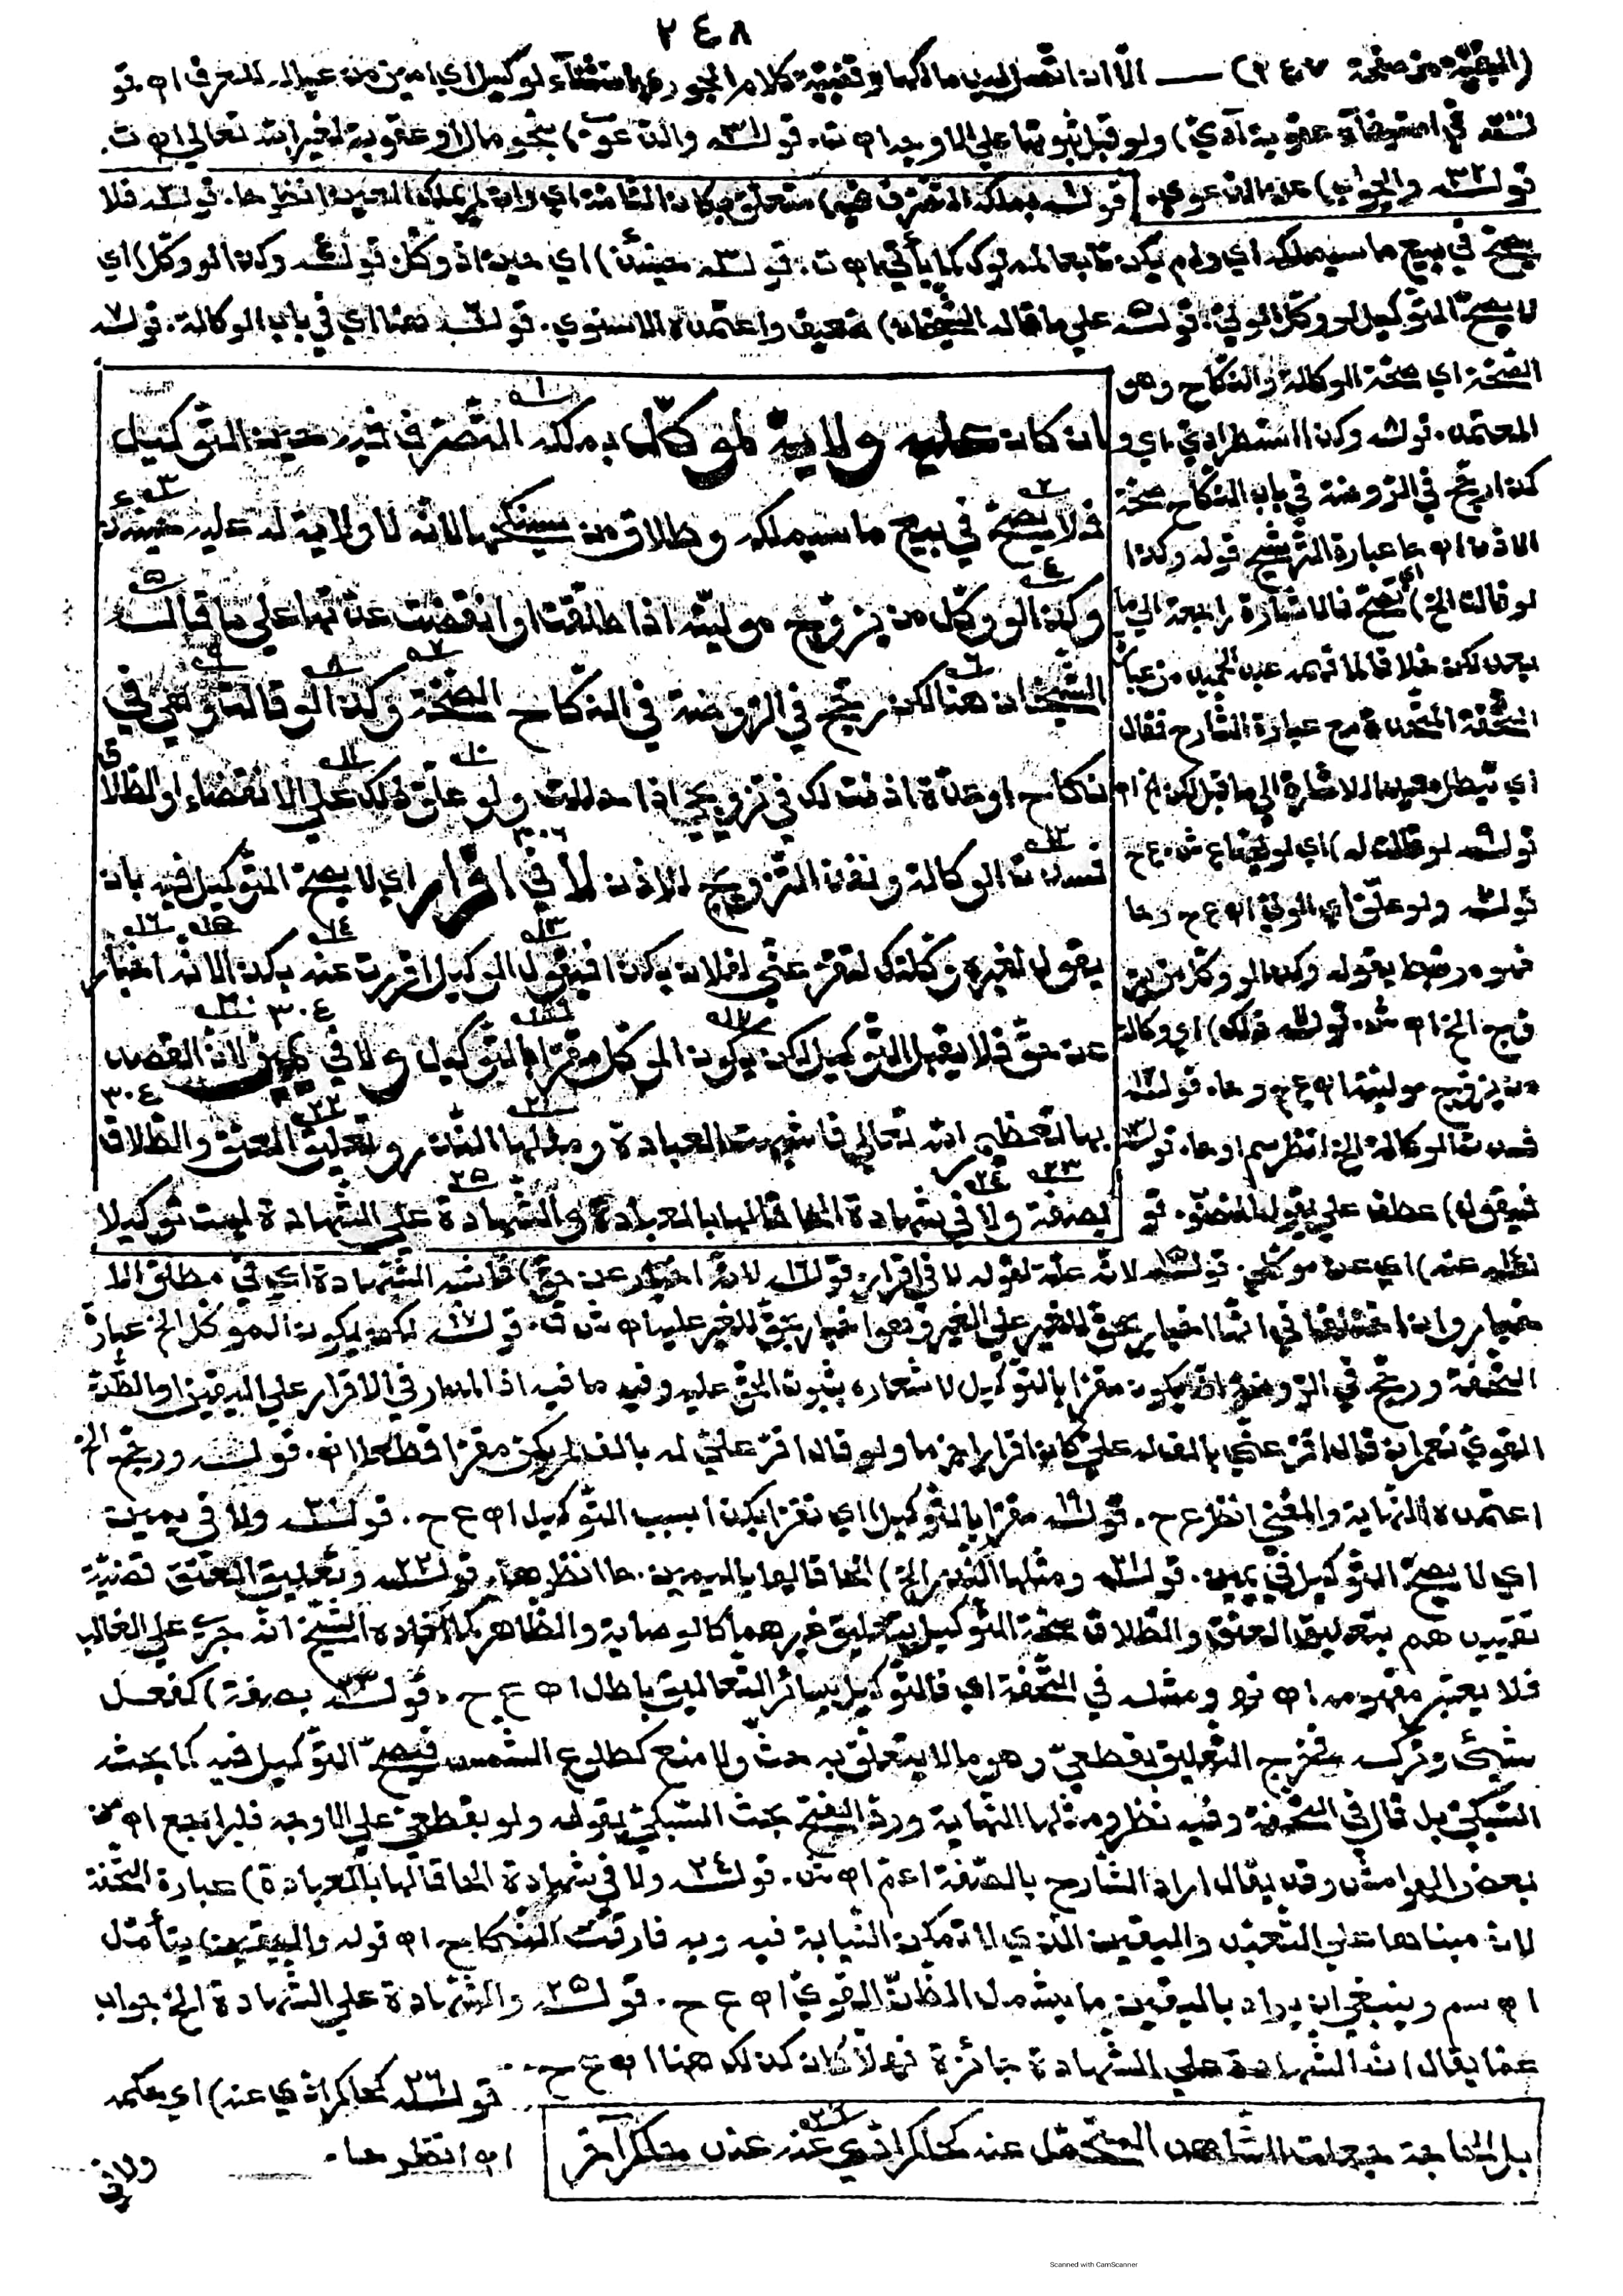 ٢٤٨
(البقية من صفحة ٢٤٧) — الا ان
قولـ٣٢ـه والجواب) عن الدعوى. قولـ١ـه بملكه التصرف فيه) متعلق بكان انظر حا. قولـ٢ـه فلا
يصح في بيع ما سيملكه اي ولم يكن تابعا لمملوك كما يأتي اه ت. قولـ٣ـه حينئذ) اي حين اذ وكل قولـ٤ـه وكذا لو وكل) اي
لا يصح التوكيل لو وكل الولي. قولـ٥ـه على ما قاله الشيخان) ضعيف واعتمده الاسنوي. قولـ٦ـه هنا اي في باب الوكالة. قولـ٧ـه
الصحة اي صحة الوكالة والنكاح وهو
المعتمد. قولـه وكذا استطرادي. اي و
كذا رجح في الروضة في باب النكاح صحة
الاذن اه حا عبارة الترشيح قوله وكذا
لو قالت الخ) اي تصح فالاشارة راجعة الى ما
بعد لكن خلافا لما فهمه عبد الحميد من عبارة
التحفة المتحدة مع عبارة الشارح فقال
قولـ٩ـه لو قالت له) اي لوليها ع ش. ع ح
قولـه ولو علق) اي الولي اه ع ح وحا
فهو قوله وكذا لو وكل من يز
وج الخ اه ش. قولـ١١ـه ذلك) اي وكالة
من يزوج موليته اه ع ح وحا. قولـ١٢ـه
فسدت الوكالة الخ انظر سم او حا. قولـ١٣ـه
فيقول) عطف على يقول قو
ان كان عليه ولاية لموكل بملكه التصرف فيه حين التوكيل
فلا يصح في بيع ما سيملكه وطلاق من سينكحها لانه لا ولاية له عليه حينئذ
وكذا لو وكل من يزوج موليته اذا طلقت او انقضت عدتها على ما قاله
الشيخان هنا لكن رجح في الروضة في النكاح الصحة وكذا لو قالت له وهي في
نكاح او عدة اذنت لك في تزويجي اذا حللت ولو علق ذلك على الانقضاء او الطلاق
فسدت الوكالة ونفذ التزويج للاذن لا في اقرار اي لا يصح التوكيل فيه بان
يقول لغيره وكلتك لتقر عني لفلان بكذا فيقول الوكيل اقررت عنه بكذا لانه اخبار
عن حق فلا يقبل التوكيل لكن يكون الموكل مقرا بالتوكيل ولا في يمين لان القصد
بها تعظيم الله تعالى فاشبهت العبادة ومثلها النذر وتعليق العتق والطلاق
بصفة ولا في شهادة الحاقا لها بالعبادة والشهادة على الشهادة ليست توكيلا
لـ١٤ـه عنه) اي عن موكلي. قولـ١٥ـه لانه علة لقوله لا في اقرار. قولـ١٦ـه لانه اخبار عن حق) فاشبه الشهادة اي في مطلق الا
خبار وان اختلفا في انها اخبار بحق للغير على الغير وهو اخبار بحق للغير عليه اه ش ق. قولـ١٧ـه لكن يكون الموكل الخ عبارة
التحفة ورجح في الروضة انه يكون مقرا بالتوكيل لاشعاره بثبوت الحق عليه وفيه ما فيه اذ المدار في الاقرار على اليقين او الظن
القوي نعم ان قال اقر عني بالف له علي كان اقرارا جزما ولو قال اقر علي له بالف لم يكن مقرا قطعا اه. قولـه ورجح الخ
اعتمده النهاية والمغني انظر ع ح. قولـ١٩ـه مقرا بالتوكيل) اي مقرا بكذا بسبب التوكيل اه ع ح. قولـ٢٠ـه ولا في يمين
اي لا يصح التوكيل في يمين. قولـ٢١ـه ومثلها النذر الخ) الحاقا لها باليمين. حا انظرها. قولـ٢٢ـه وتعليق العتق قضية
تقييدهم بتعليق العتق والطلاق صحة التوكيل بتعليق غيرهما كالوصاية والظاهر كما افاده الشيخ انه جرى على الغالب
فلا يعتبر مفهومه اه ومثله في التحفة اي فالتوكيل بسائر التعاليق باطل اه ع ح. قولـ٢٣ـه بصفة) كفعل
شيء وتركه خرج التعليق بقطعي وهو ما لا يتعلق به حث ولا منع كطلوع الشمس فيصح التوكيل فيه كما بحثه
السبكي بل قال في التحفة وفيه نظر ومثلها النهاية ورد الفتح بحث السبكي بقوله ولو بقطعي على الاوجه فليراجع اه من
بعض الهوامش وقد يقال اراد الشارح بالصفة اعم اه ش. قولـ٢٤ـه ولا في شهادة الحاقا لها بالعبادة) عبارة التحفة
لان مبناها على التعبد واليقين الذي لا تمكن النيابة فيه وبه فارقت النكاح اه قوله واليقين) يتأمل
اه سم وينبغي ان يراد باليقين ما يشمل الظن القوي اه ع ح. قولـ٢٥ـه والشهادة على الشهادة الخ جواب
عما يقال ان الشهادة على الشهادة جائزة فهلا كان كذلك هنا اه ع ح
قولـ٢٦ـه كحاكم ادي عنه) اي حكمه
اه انظر حا.
بل الحاجة جعلت الشاهد المتحمل عنه كحاكم ادي عنه عند حاكم آخر
ولا في
Scanned with CamScanner